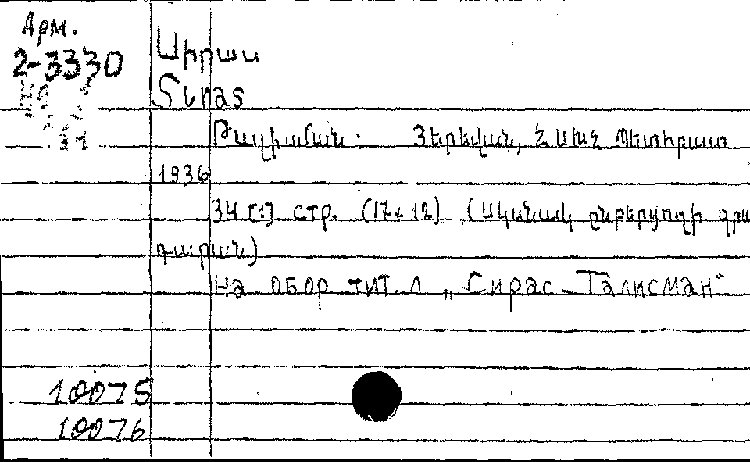 Арм.
2-3330
Սիրաս
Siras
Թալիսման. Յերեվան, Հ Ս Խ Հ Պետհրատ
1936
34 [2] стр. (17x12) (Մկանակ ընթերցողի գրա
դարան)
На обор тит. л „Сирас – Талисман“
10075
10076